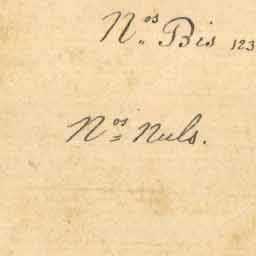 Nos Bis 123
Nos Nuls.